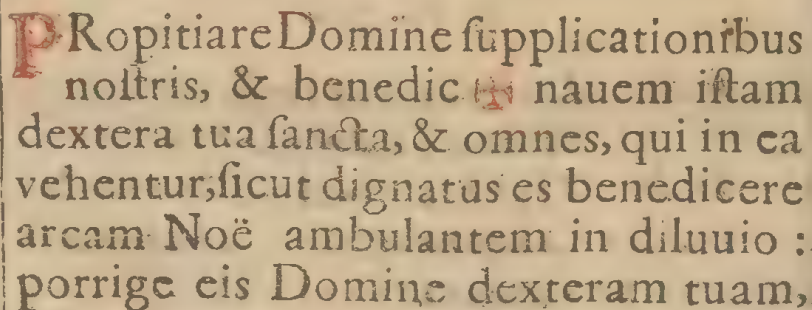 PRopitiare Domine ſupplicationibus
noſtris, & benedic ✠ nauem iſtam
dextera tua ſancta, & omnes, qui in ea
vehentur; ſicut dignatus es benedicere
arcam Noë ambulantem in diluuio :
porrige eis Domine dexteram tuam,